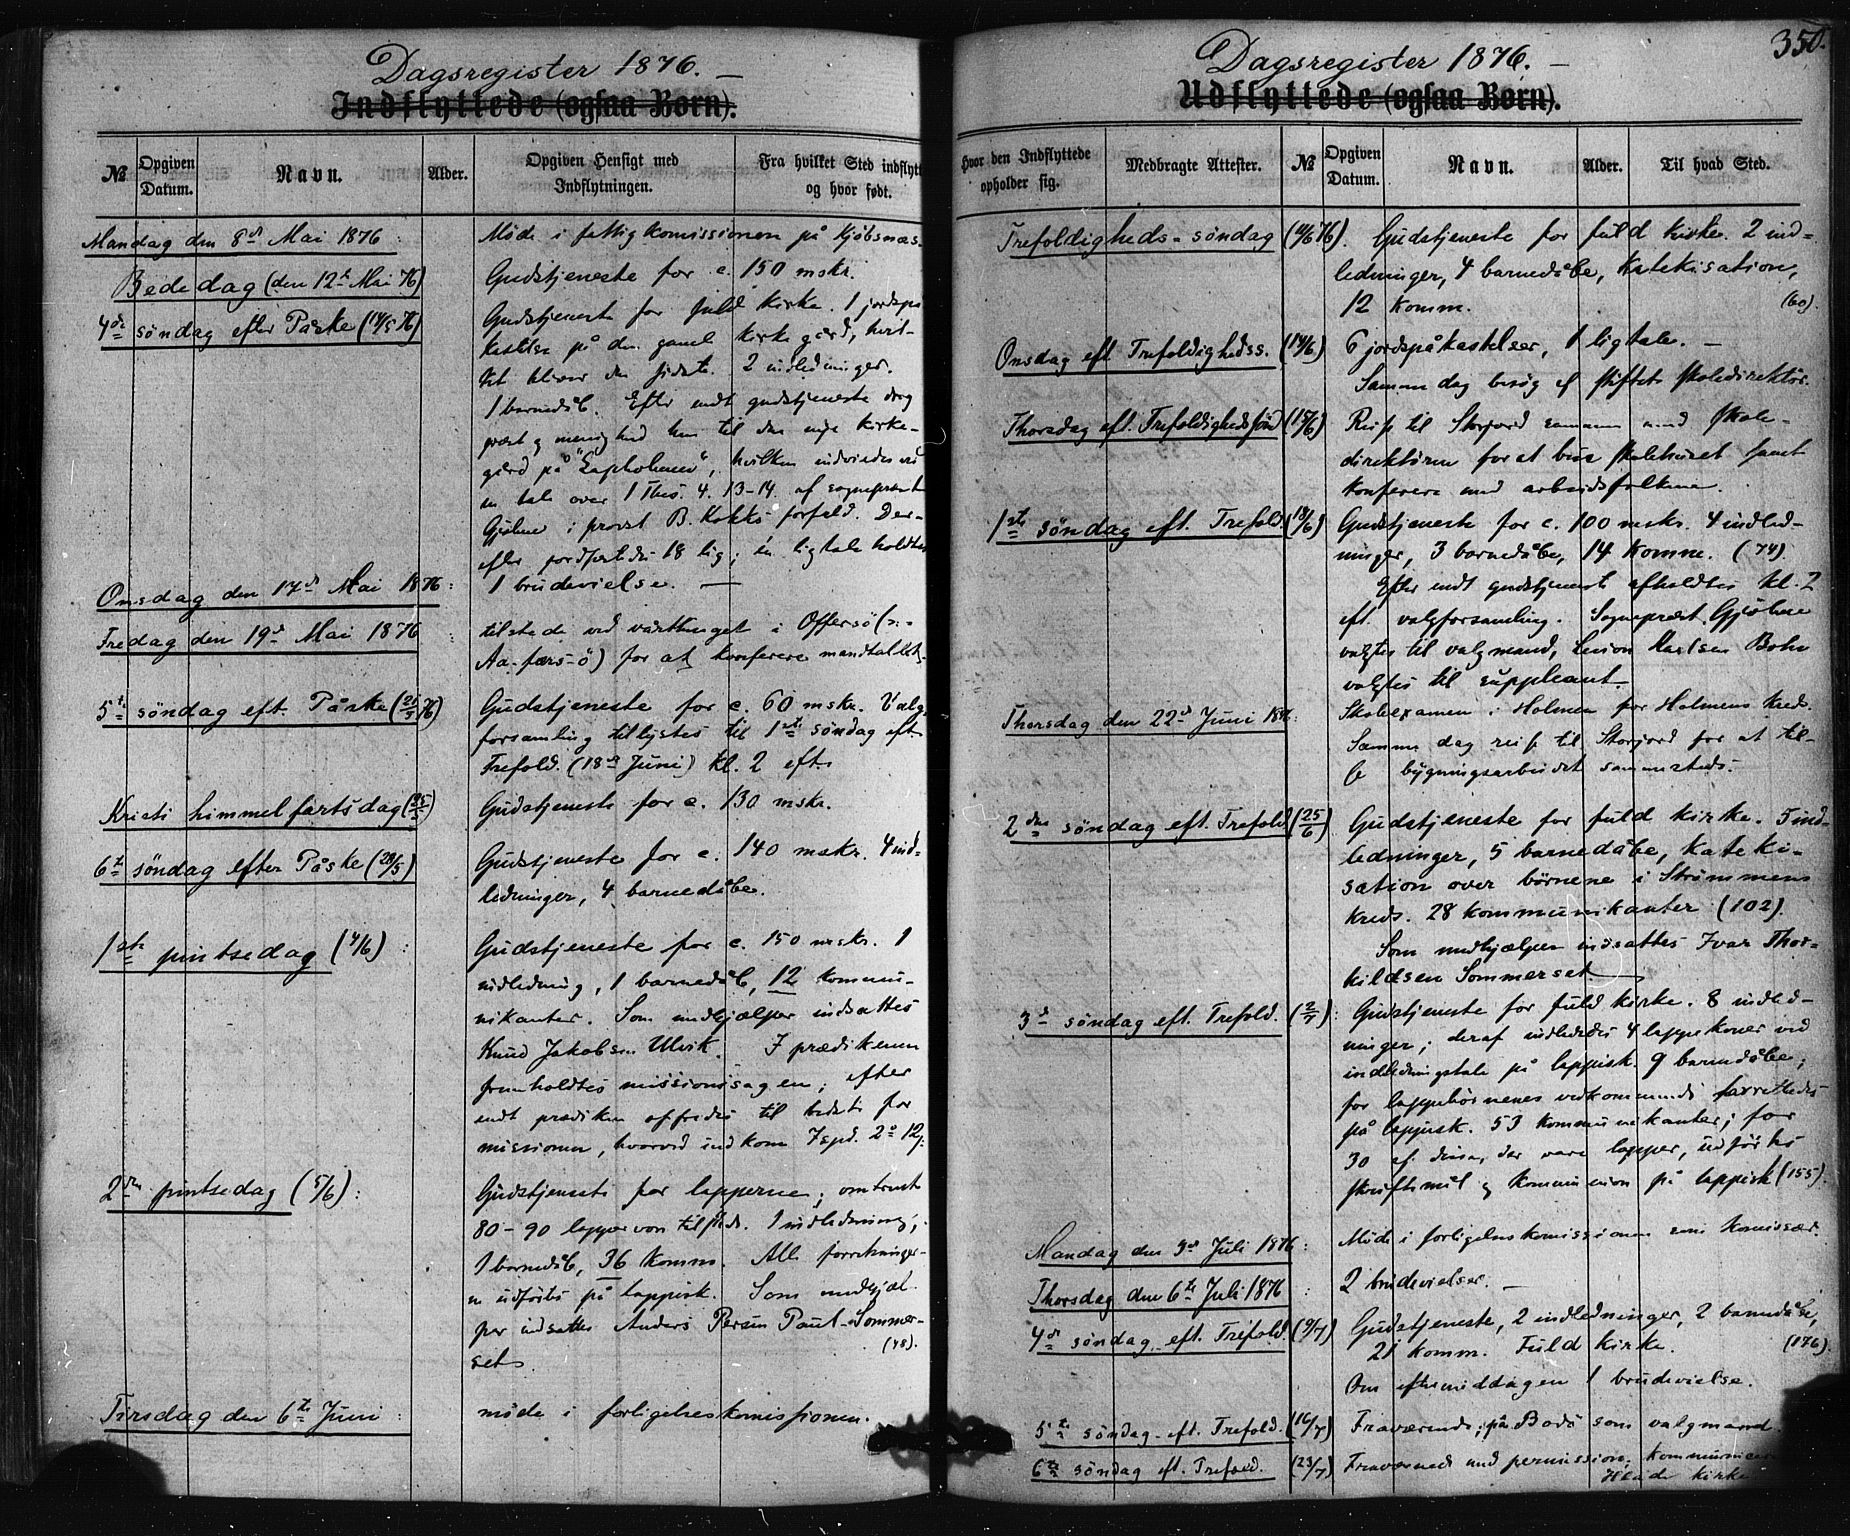 Dagsregister 1876. —
Indflyttede (ogsaa Børn).
№
Opgiven Datum.
Navn.
Alder.
Opgiven Hensigt med Indflytningen.
Fra hvilket Sted indflytt og hvor født.
Mandag den 8de Mai 1876 : Møde i fattigkomissionen på Kjøbsnæs.
Bededag (den 12te Mai 76) Gudstjeneste for c. 150 mskr.
4de søndag efter Påske (14/5 76) Gudstjeneste for fuld kirke. 1 jordspå
kastelse på den gamle kirkegård, hvil-
ket bliver den sidste. 2 indledninger.
1 barnedåb. Efter endt gudstjeneste drog
præst og menighed hen til den nye kirke-
gård på "Lapholmen", hvilken indviedes ved
en tale over 1 Thes. 4. 13-14 af sognepræst
Gjølme i provst B. Kokks forfald. Der-
efter jordfæstedes 18 lig; én ligtale holdtes
Onsdag den 17de Mai 1876 : 1 brudevielse. —
Fredag den 19de Mai 1876 tilstede ved i Offersø (:
Aa-færs-ø) for at konferere mandtallet
5te søndag eft. Påske (21/5 76) Gudstjeneste for c. 60 mskr. Valg-
forsamling tillystes til 1ste søndag eft.
Trefold. (18de Juni) kl. 2 eft.
Kristi himmelfartsdag (25/5) Gudstjeneste for c. 130 mskr.
6te søndag efter Påske (28/5) Gudstjeneste for c. 140 mskr. 4 ind-
ledninger, 4 barnedåbe.
1ste pintsedag (4/6) : Gudstjeneste for c. 150 mskr. 1
indledning, 1 barnedåb, 12 kommu-
nikanter. Som medhjælper indsattes
Knud Jakobsen Ulvik. I prædikenen
fremholdtes missionssagen; efter
endt prædiken offredes til bedste for
missionen, hvorved indkom 7 spd. 2 12
2den pintsedag (5/6) : Gudstjeneste for lapperne; omtrent
80-90 lapper vare tilstede. 1 indledning,
1 barnedåb, 36 komm. Alle forretninger-
ne udførtes på lappisk. Som medhjæl-
per indsattes Anders Persen Paul-Sommer-
set. (48).
Tirsdag den 6te Juni : møde i forligelseskomissionen.
350.
Dagsregister 1876. —
Udflyttede (ogsaa Børn).
Hvor den Indflyttede opholder sig.
Medbragte Attester.
№
Opgiven Datum.
Navn.
Alder.
Til hvad Sted.
Trefoldigheds-søndag (11/6 76). Gudstjeneste for fuld kirke. 2 ind-
ledninger, 4 barnedåbe, katekisation,
12 komm. (60).
Onsdag eft. Trefoldighedss. (14/6) 6 jordspåkastelser, 1 ligtale. —
Samme dag besøg af stiftets skoledirektør.
Thorsdag eft. Trefoldighedssønd (15/6) Reise til Storjord sammen med skole-
direktøren for at bese skolehuset samt
konferere med arbeidsfolkene.
1ste søndag eft. Trefold. (18/6) Gudstjeneste for c. 100 mskr. 4 indled-
ninger, 3 barnedåbe, 14 komm. (74)
Efter endt gudstjeneste afholdtes kl. 2
eft. valgforsamling. Sognepræst Gjølme
valgtes til valgmand, Karlsen Bohn
valgtes til suppleant.
Thorsdag den 22de Juni 1876: Skoleexamen i Holmen for Holmens kreds.
Samme dag reise til Storjord for at til-
se bygningsarbeidet sammesteds.
2den søndag eft. Trefold (25/6) Gudstjeneste for fuld kirke. 5 ind-
ledninger, 5 barnedåbe, kateki-
sation over børnene i Strømmens
kreds. 28 kommunikanter (102).
Som medhjælper indsattes Ivar Thor-
kildsen Sommerset
3de søndag eft. Trefold. (2/7): Gudstjeneste for fuld kirke. 8 indled-
ninger; deraf indledtes 4 lappekoner ved
indledningstale på lappisk. 9 barnedåbe;
for lappebørnenes vedkommende forrettedes
på lappisk. 53 kommunikanter; for
30 af disse, der vare lapper, udførtes
skriftemål og kommunion på lappisk (155).
Mandag den 3de Juli 1876 : Møde i forligelseskomissionen som komissær.
Thorsdag den 6te Juli 1876 : 2 brudevielser. —
4de søndag eft. Trefold. (9/7) Gudstjeneste, 2 indledninger, 2 barnedåbe,
21 komm. Fuld kirke. (176).
Om eftermiddagen 1 brudevielse.
5te søndag eft. Trefold. (16/7) Fraværende; på Bodø som valgmand.
6te søndag eft. Trefold. (23/7) Fraværende med permission;
kirke